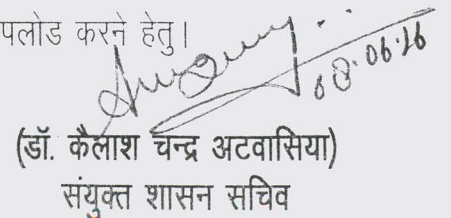 पलोड करने हेतु।
08.06.16
(डॉ. कैलाश चन्द्र अटवासिया)
संयुक्त शासन सचिव